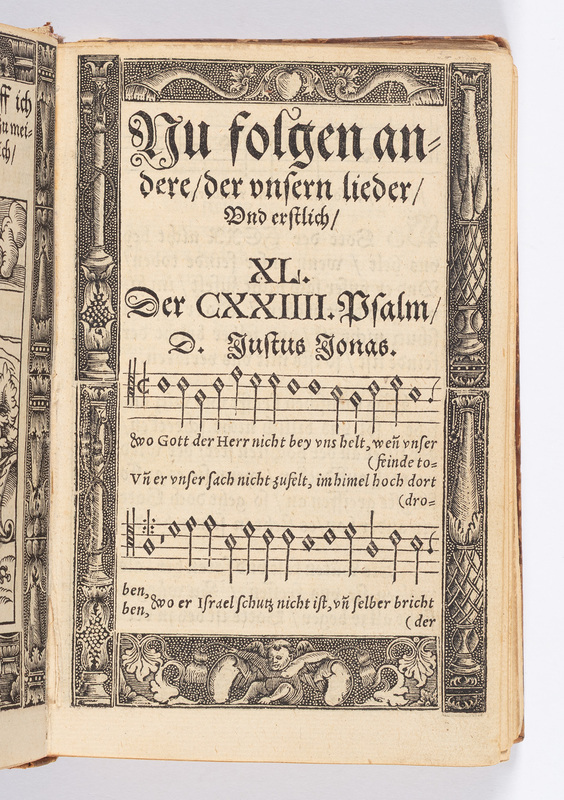 ff ich
zu mei-
ich/
Nu folgen an-
dere/der vnsern lieder/
Vnd erstlich/
XL.
Der CXXIIII. Psalm/
D. Justus Jonas.
Wo Gott der Herr nicht bey vns helt, weñ vnser
(feinde to-
Vñ er vnser sach nicht zufelt, im himel hoch dort
(dro-
ben,
ben, Wo er Israel schutz nicht ist, vñ selber bricht
(der